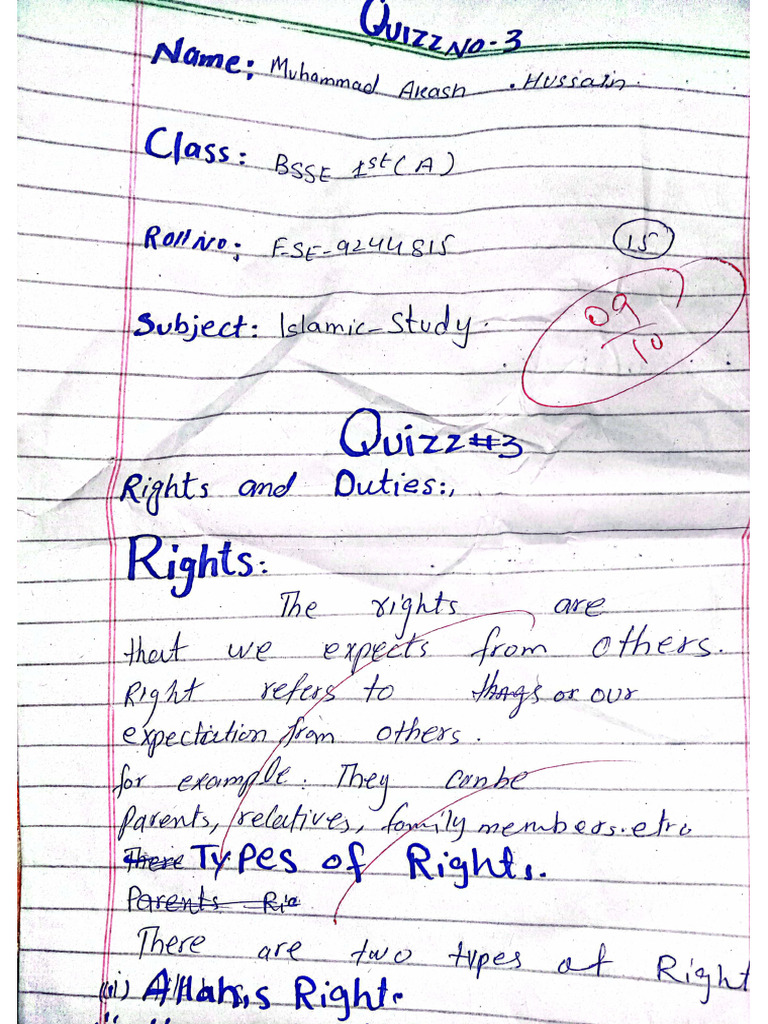 Quizz No-3
Name: Muhammad Akash . Hussain.
Class: BSSE 1st (A)
Roll No: F-SE-9244815
15
09/10
Subject: Islamic-Study.
Quizz #3
Rights and Duties:,
Rights:
The rights are
that we expects from others.
Right refers to things or our
expectation from others.
for example. They can be
Parents, relatives, family members. etc
There Types of Rights.
Parents Rig
There are two types of Right
(i) Allah,s Right.